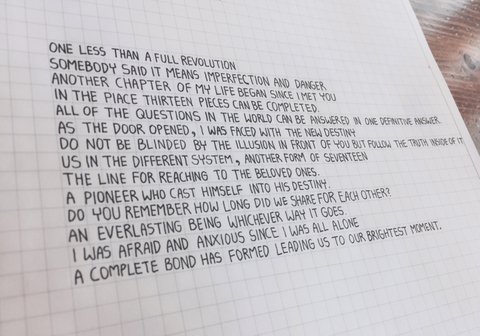 ONE LESS THAN A FULL REVOLUTION
SOMEBODY SAID IT MEANS IMPERFECTION AND DANGER
ANOTHER CHAPTER OF MY LIFE BEGAN SINCE I MET YOU
IN THE PLACE THIRTEEN PIECES CAN BE COMPLETED.
ALL OF THE QUESTIONS IN THE WORLD CAN BE ANSWERED IN ONE DEFINITIVE ANSWER
AS THE DOOR OPENED, I WAS FACED WITH THE NEW DESTINY
DO NOT BE BLINDED BY THE ILLUSION IN FRONT OF YOU BUT FOLLOW THE TRUTH INSIDE OF IT
US IN THE DIFFERENT SYSTEM, ANOTHER FORM OF SEVENTEEN
THE LINE FOR REACHING TO THE BELOVED ONES.
A PIONEER WHO CAST HIMSELF INTO HIS DESTINY.
DO YOU REMEMBER HOW LONG DID WE SHARE FOR EACH OTHER?
AN EVERLASTING BEING WHICHEVER WAY IT GOES.
I WAS AFRAID AND ANXIOUS SINCE I WAS ALL ALONE
A COMPLETE BOND HAS FORMED LEADING US TO OUR BRIGHTEST MOMENT.